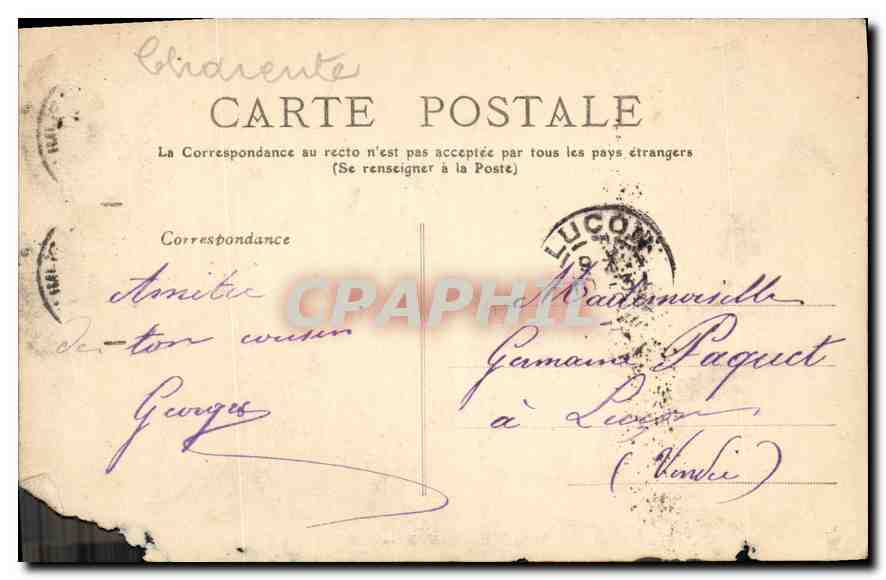 Charente
CARTE POSTALE
La Correspondance au recto n'est pas acceptée par tous les pays étrangers
(Se renseigner à la Poste)
Correspondance
LUÇON
CPARHIL
Amitié
de ton cousin
Georges
Mademoiselle
Germaine Paquet
à Luçon
(Vendée)